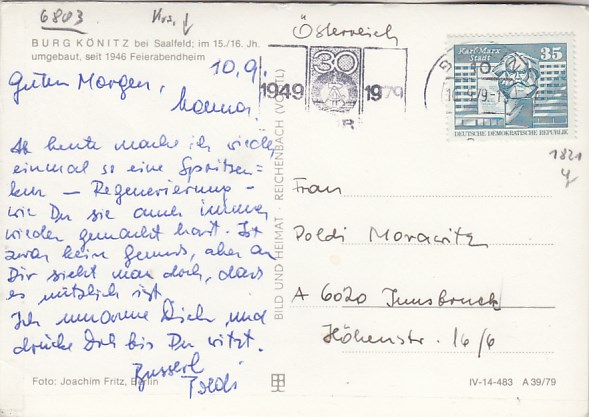 6803
Österreich
BURG KÖNITZ bei Saalfeld; im 15./16. Jh.
umgebaut, seit 1946 Feierabendheim
10.9.
Guten Morgen,
Mama!
Ab heute mache ich wieder
einmal so eine Spritzen=
kur – Regenerierung –
wie Du sie auch immer
wieder gemacht hast. Ist
zwar kein Genuß, aber an
Dir sieht man doch, dass
es nützlich ist.
Ich umarme Dich und
drücke Dich bis Du
Busserl
Poldi
Foto: Joachim Fritz, Berlin
BILD UND HEIMAT · REICHENBACH (VOGTL)
30
1949 1979
Karl-Marx-
Stadt
35
DEUTSCHE DEMOKRATISCHE REPUBLIK
1821
Frau
Poldi Morawitz
A 6020 Innsbruck
Höhenstr. 16/6
IV-14-483 A 39/79